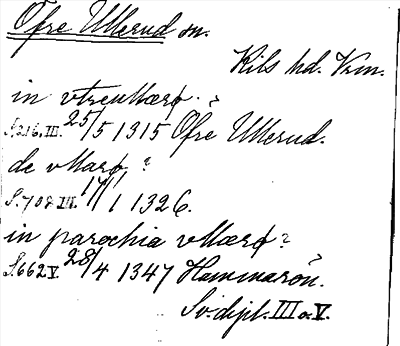 Öfre Ullerud sn.
Kils hd. Vrm.
in vtreullærø.
S. 216. III. 25/5 1315 Öfre Ullerud.
de vllarø?
S. 708 III. 17/1 1326.
in parochia vllærø?
S. 662 V. 28/4 1347 Hammarön.
Sv. dipl. III o. V.